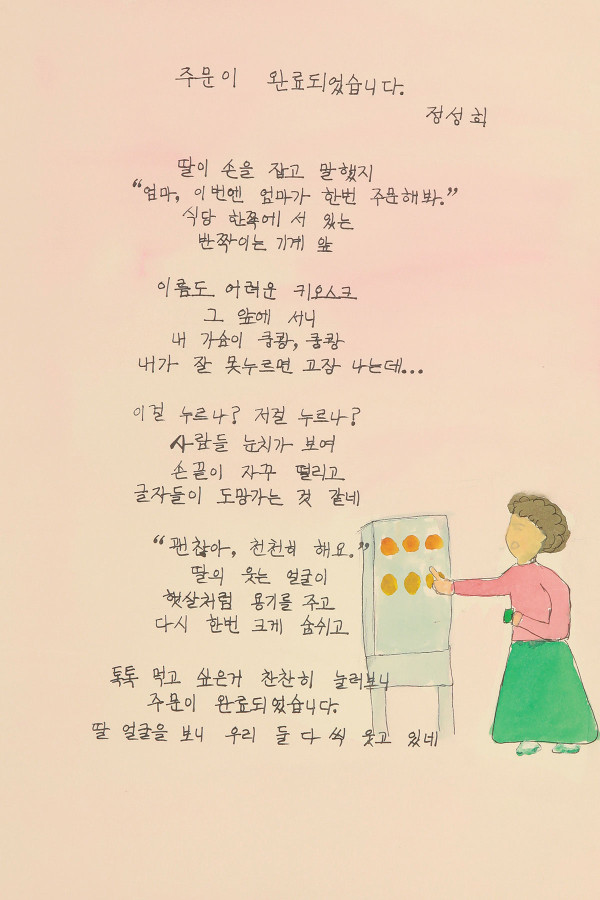 주문이 완료되었습니다.
정성희
딸이 손을 잡고 말했지
“엄마, 이번엔 엄마가 한번 주문해봐.”
식당 한쪽에 서 있는
반짝이는 기계 앞
이름도 어려운 키오스크
그 앞에 서니
내 가슴이 쿵쾅, 쿵쾅
내가 잘 못누르면 고장 나는데...
이걸 누르나? 저걸 누르나?
사람들 눈치가 보여
손끝이 자꾸 떨리고
글자들이 도망가는 것 같네
“괜찮아, 천천히 해요.”
딸의 웃는 얼굴이
햇살처럼 용기를 주고
다시 한번 크게 숨쉬고
톡톡 먹고 싶은거 찬찬히 눌러보니
주문이 완료되었습니다.
딸 얼굴을 보니 우리 둘 다 씩 웃고 있네